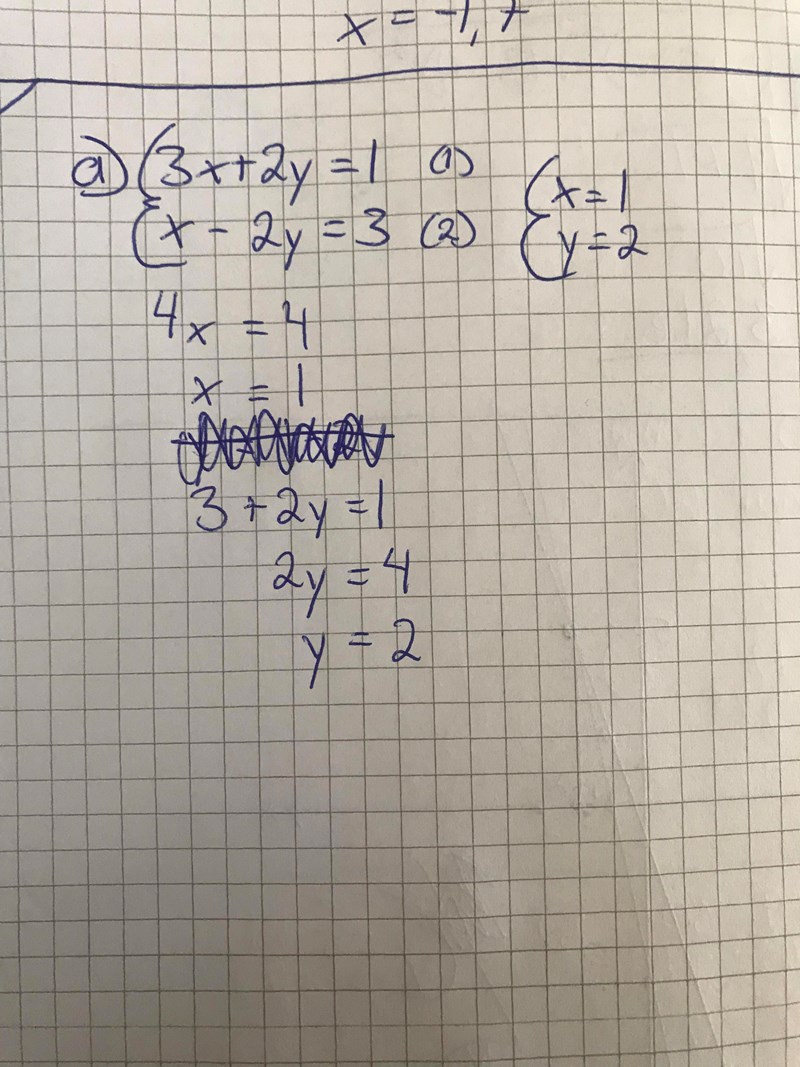 x = -1,7
a) { 3x + 2y = 1 (1)
x - 2y = 3 (2)
{ x = 1
y = 2
4x = 4
x = 1
3 + 2y = 1
2y = 4
y = 2